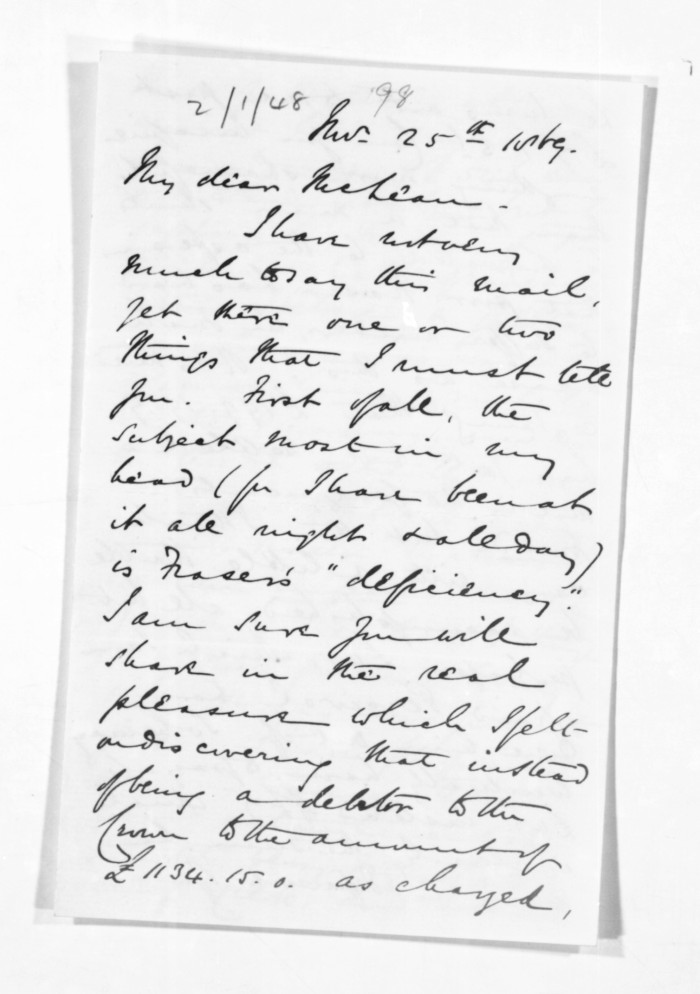 2/1/48 98
Nov. 25th 1869.
My dear McLean.
I have not very
much to say this mail,
yet there one or two
things that I must tell
you. First of all, the
subject most in my
head (for I have been at
it all night & all day)
is Fraser's "deficiency."
I am sure you will
share in the real
pleasure which I felt
on discovering that instead
of being a debtor to the
Crown to the amount of
£1134.15.0. as charged,